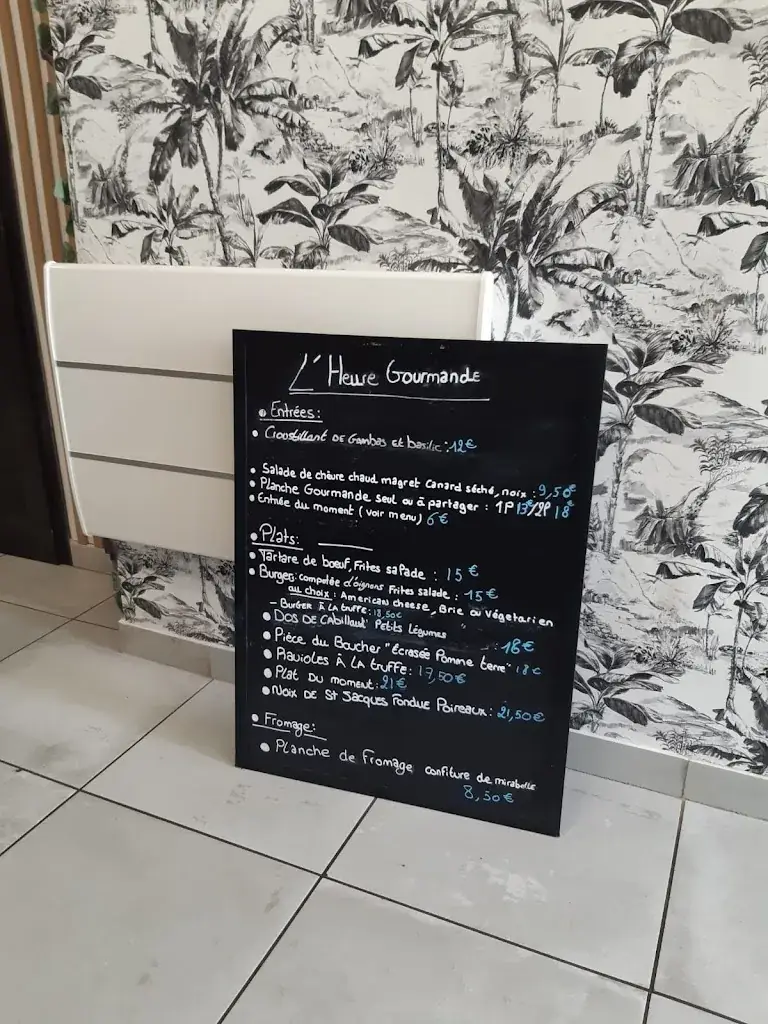 L'Heure Gourmande
• Entrées:
• Croustillant DE Gambas et basilic : 12€
• Salade de chèvre chaud magret Canard séché, noix : 9,50€
• Planche Gourmande seul ou à partager : 1P 13€/2P 18€
• Entrée du moment (voir menu) 6€
• Plats:
• Tartare de bœuf, Frites salade : 15€
• Burger: compotée d'oignons Frites salade : 15€
au choix : American cheese, Brie ou Végétarien
- BURGER À LA truffe: 18,50€
• DOS DE CAbillaud Petits Légumes : 18€
• Pièce du Boucher "Écrasée Pomme terre" 18€
• Ravioles À LA truffe: 17,50€
• Plat DU moment: 21€
• Noix DE St Jacques Fondue Poireaux: 21,50€
• Fromage:
• Planche de Fromage confiture de mirabelle
8,50€